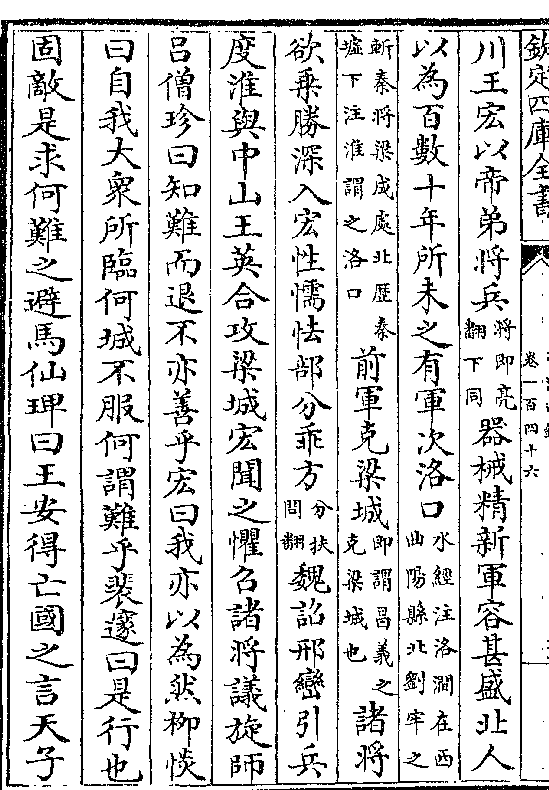 欽定四庫全書
卷一百四十六
川王宏以帝弟將兵將即亮翻下同器械精新軍容甚盛北人
以為百數十年所未之有軍次洛口水經注洛澗在西曲陽縣北劉牢之
斬秦將梁成處北歴秦墟下注淮謂之洛口前軍克梁城即謂昌義之克梁城也諸將
欲乗勝深入宏性懦怯部分乖方分扶問翻魏詔邢巒引兵
度淮與中山王英合攻梁城宏聞之懼召諸將議旋師
吕僧珍曰知難而退不亦善乎宏曰我亦以為然柳惔
曰自我大衆所臨何城不服何謂難乎裴邃曰是行也
固敵是求何難之避馬仙琕曰王安得亡國之言天子